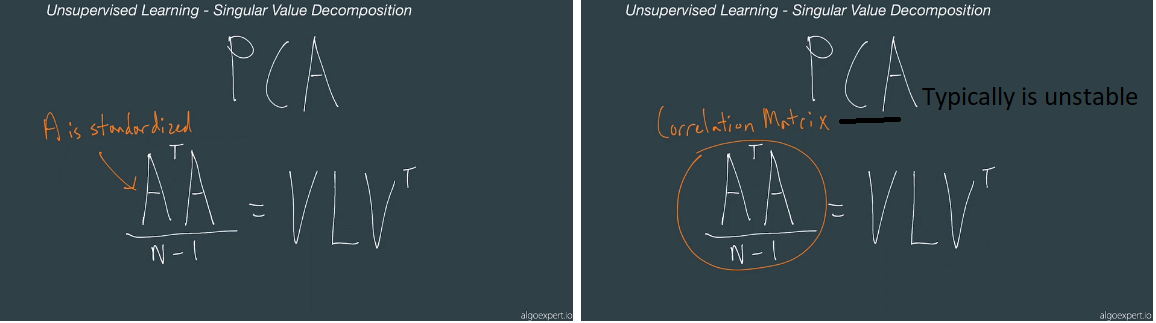 Unsupervised Learning - Singular Value Decomposition
PCA
A is standardized
AᵀA
= VLVᵀ
N-1
algoexpert.io
Unsupervised Learning - Singular Value Decomposition
PCA
Typically is unstable
Correlation Matrix
AᵀA
= VLVᵀ
N-1
algoexpert.io